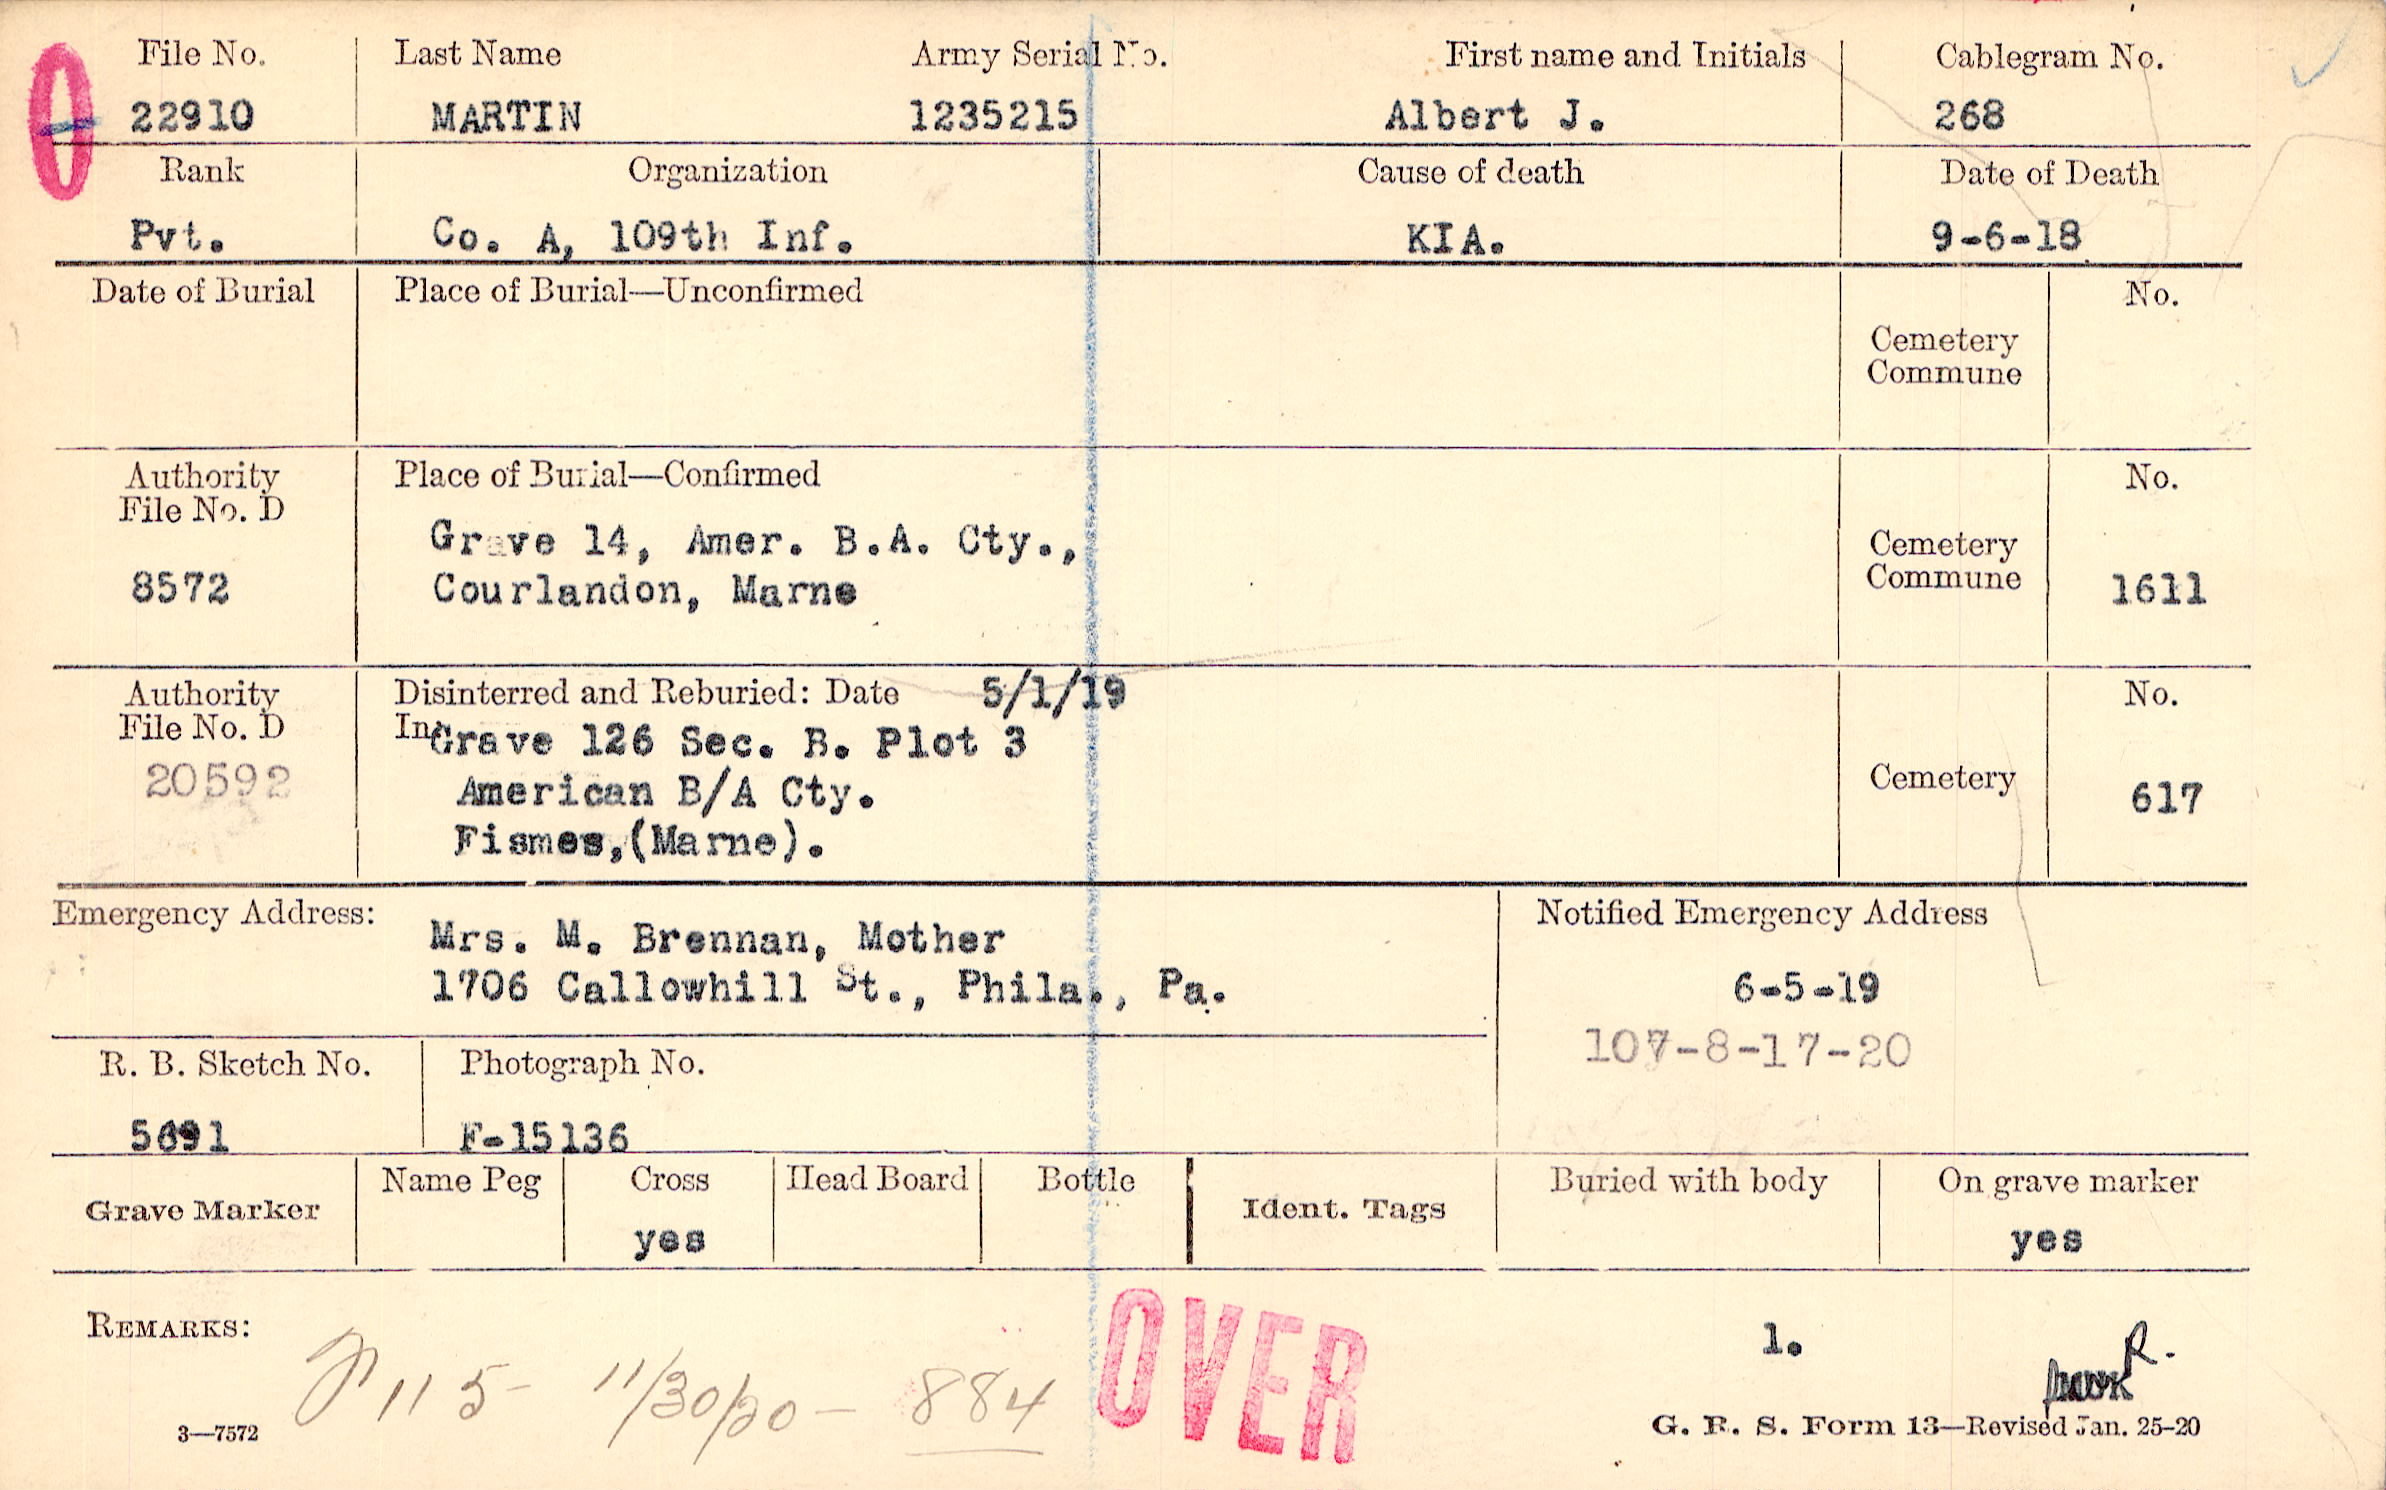 File No. Last Name Army Serial No. First name and Initials Cablegram No.
22910 MARTIN 1235215 Albert J. 268
Rank Organization Cause of death Date of Death
Pvt. Co. A, 109th Inf. KIA. 9-6-18
Date of Burial Place of Burial—Unconfirmed No.
Cemetery
Commune
Authority Place of Burial—Confirmed No.
File No. D
Grave 14, Amer. B.A. Cty., Cemetery
8572 Courlandon, Marne Commune 1611
Authority Disinterred and Reburied: Date 5/1/19 No.
File No. D In Grave 126 Sec. B. Plot 3
20592 American B/A Cty. Cemetery 617
Fismes,(Marne).
Emergency Address: Notified Emergency Address
Mrs. M. Brennan, Mother
1706 Callowhill St., Phila., Pa. 6-5-19
107-8-17-20
R. B. Sketch No. Photograph No.
5691 F-15136
Grave Marker Name Peg Cross Head Board Bottle Ident. Tags Buried with body On grave marker
yes yes
REMARKS: OVER 1. R.
115- 11/30/20- 884
3—7572 G. R. S. Form 13—Revised Jan. 25-20